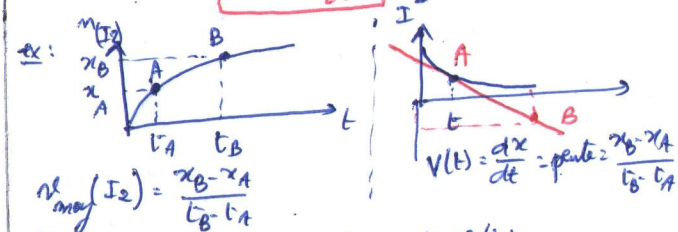 ex :
n(I2)
xB
B
x
A
A
tA
tB
t
vmoy(I2) = xB - xA / tB - tA
I
A
t
B
V(t) = dx/dt = pente = xB - xA / tB - tA